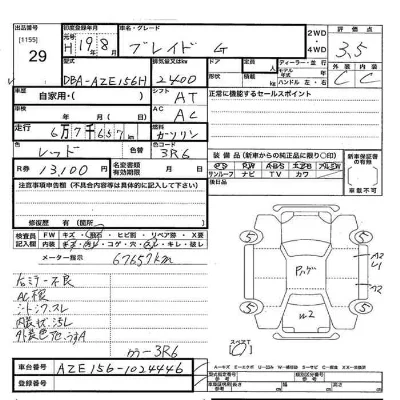 出品番号
[1155]
29
初度登録年月
H 19 8 月
車名・グレード
ブレイド G
2WD
4WD
評価点
3.5
型式
DBA-AZE156H
排気量or積
2400
形状
ドア
定員
人
積載量
kg
モデル年式
年式
ディーラー・並行
ハンドル 左・右
外装
内装
C
C
車歴
自家用・( )
シフト
AT
正常に機能するセールスポイント
車検
年 月 日
AC
AC
走行
6万7千657 km
燃料
ガソリン
色
レッド
色替
色コード
3R6
装備品(新車からの純正品に限り○印)
サンルーフ ナビ TV カワ
新車保証書の有無
有
車載不可
R券
13,100 円
名変期限
有効期限
月 日
後日品
注意事項申告欄(不具合内容は具体的に記入して下さい)
修復歴 有(箇所 )
検査員記入欄
FW キズ・飛石・ヒビ割・リペア跡・X要
内装 キズ・汚れ・コゲ・穴・スレ・キレ・破レ
メーター指示
67657km
右ミラー不良
AC根
シートシワ.スレ
カラー3R6
車台番号
AZE156-1024446
登録番号
5
5
5
5
Pハゲ
U2
A2
U1
A2
スペアT